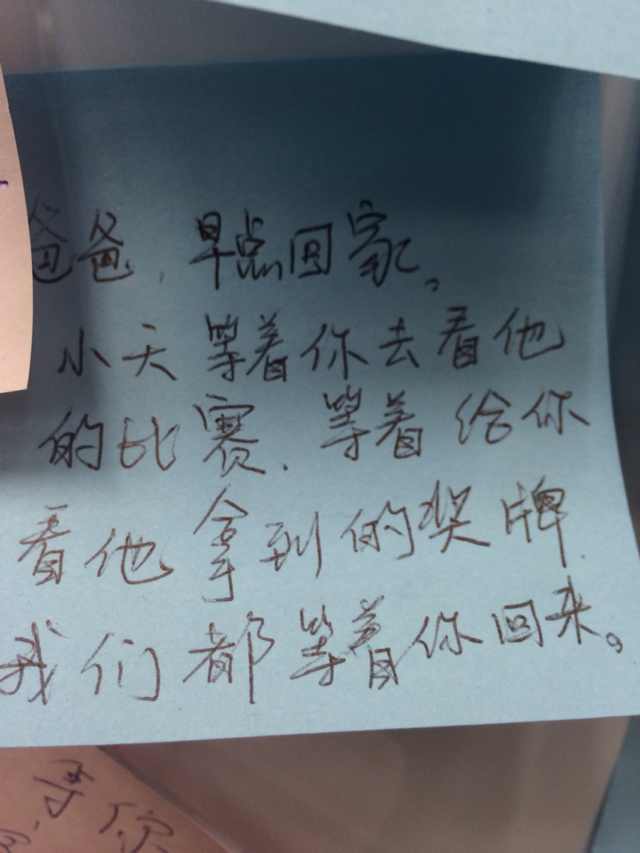 爸爸，早点回家。
小天等着你去看他
的比赛，等着给你
看他拿到的奖牌
我们都等着你回来。
等你